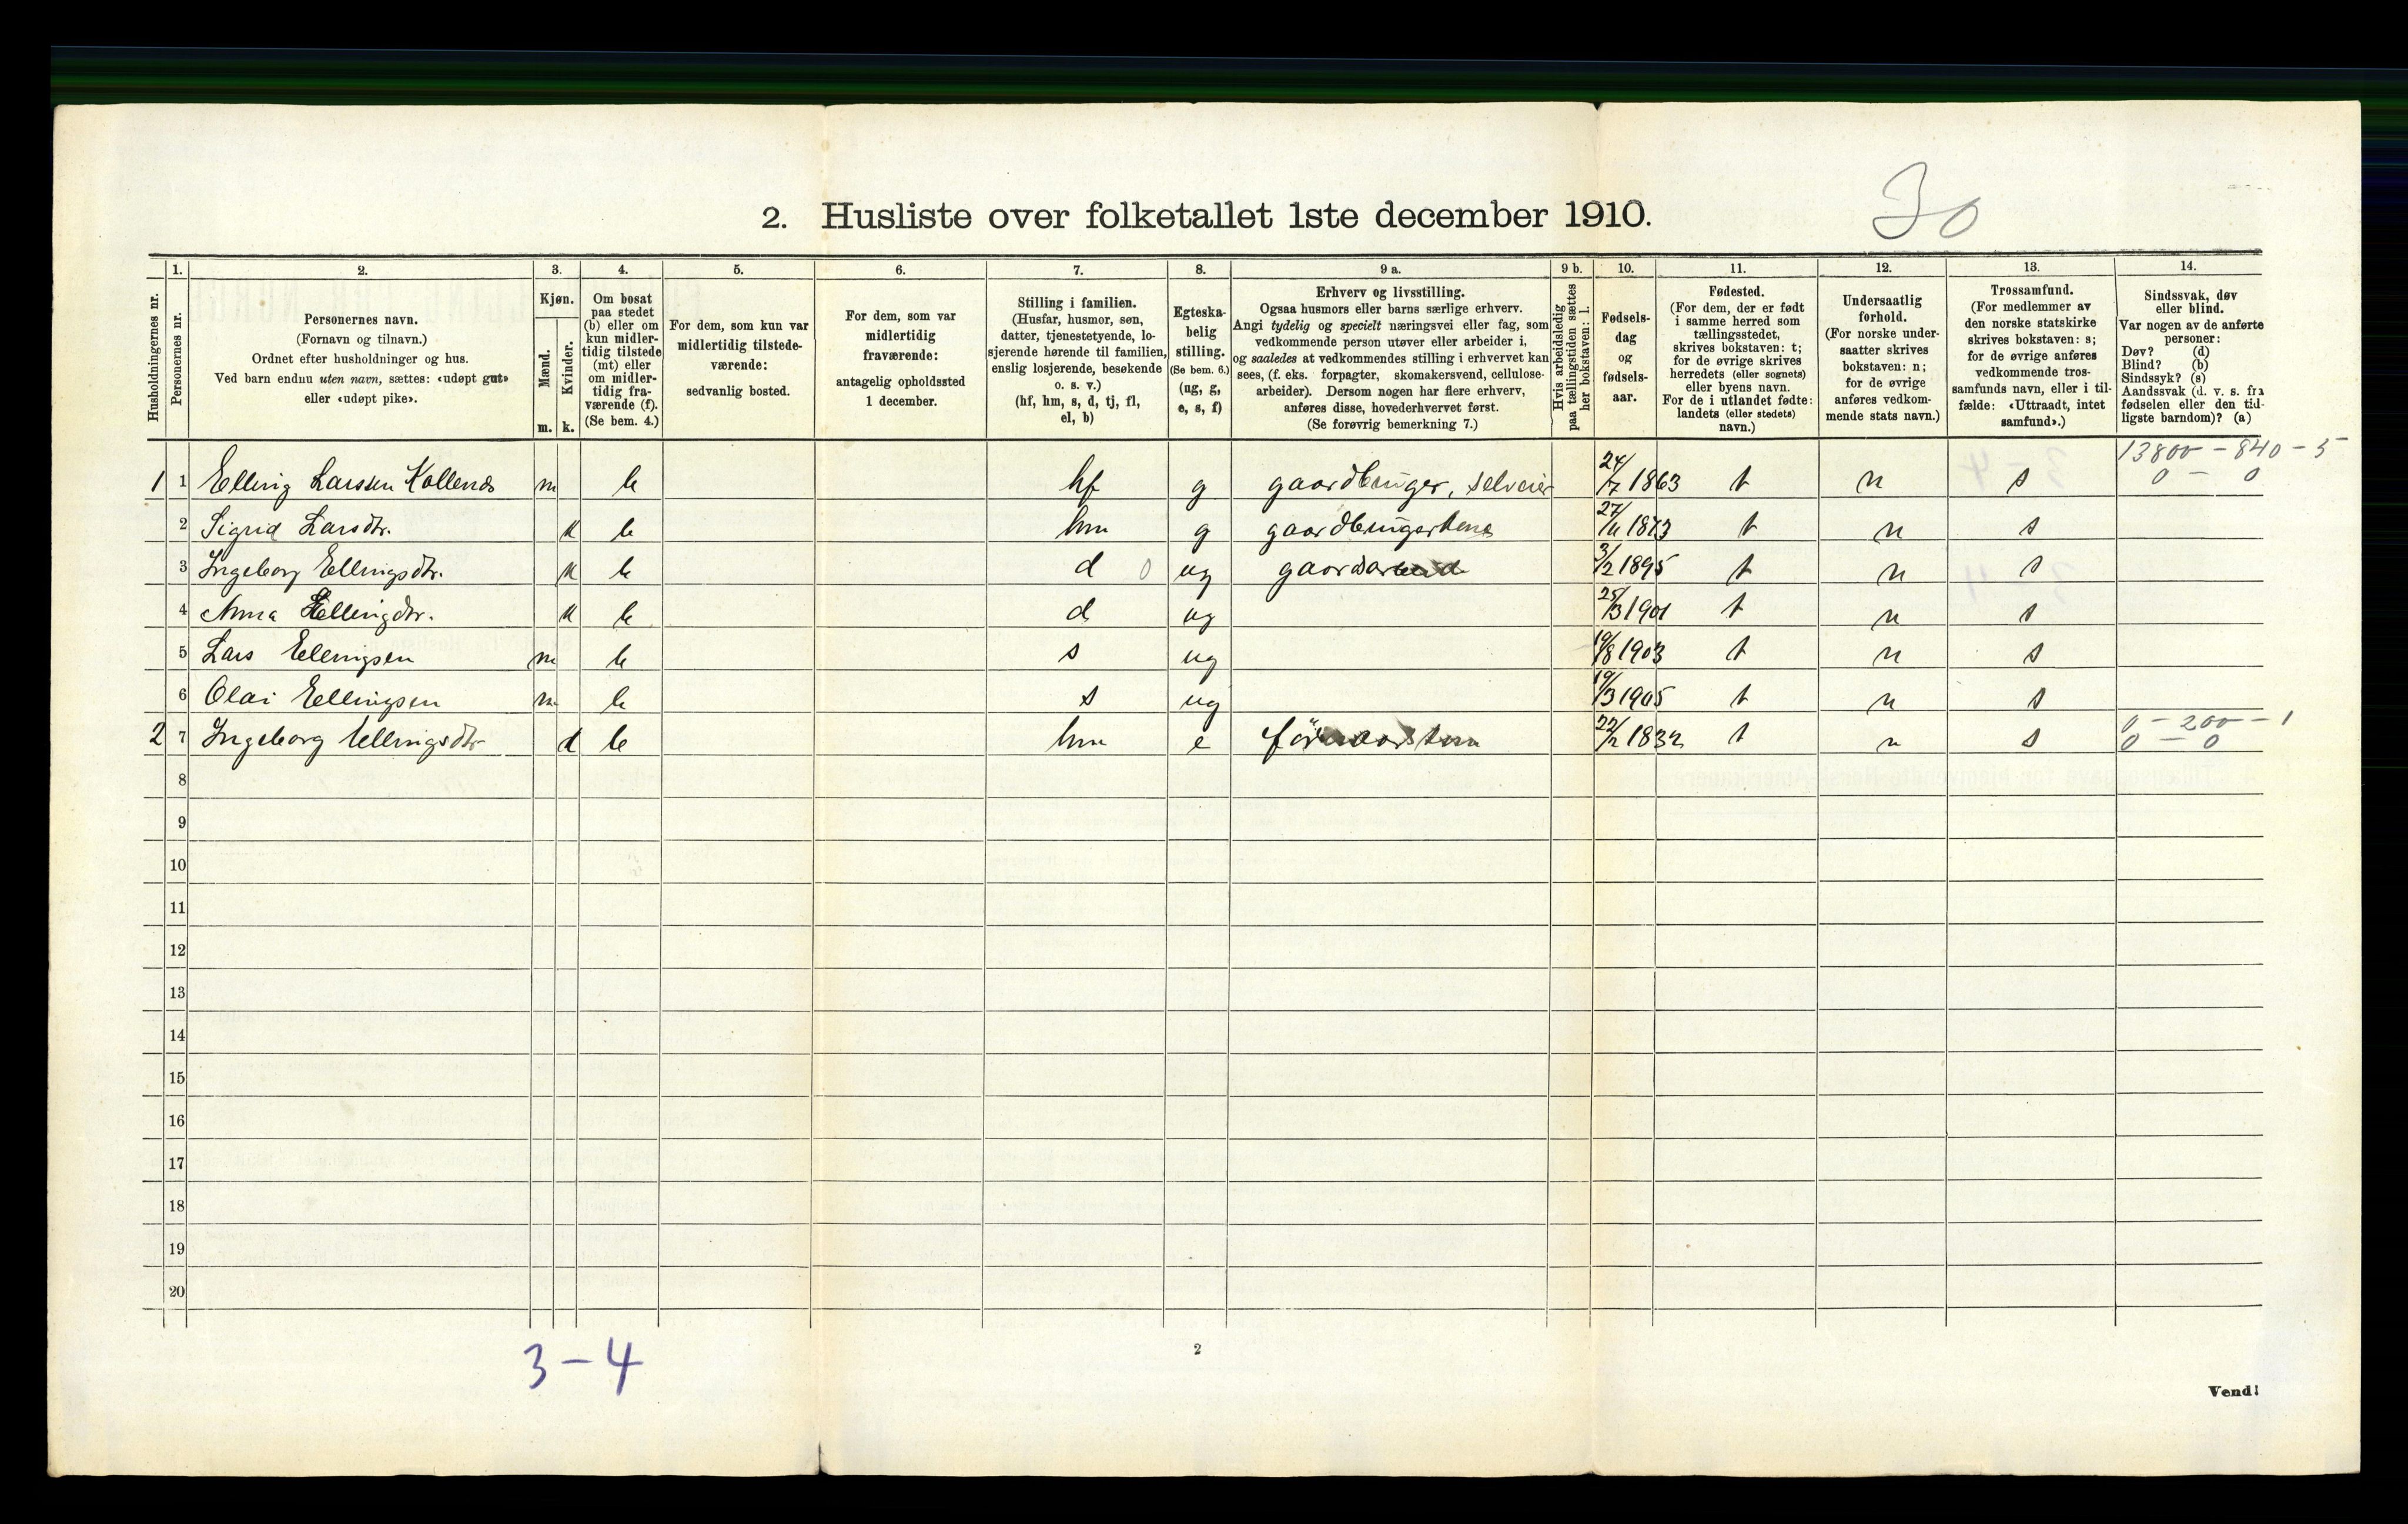 30
2. Husliste over folketallet 1ste december 1910.
Husholdningernes nr.
1.
Personernes nr.
2.
Personernes navn.
(Fornavn og tilnavn.)
Ordnet efter husholdninger og hus.
Ved barn endnu uten navn, sættes: «udøpt gut»
eller «udøpt pike».
3.
Kjøn.
Mænd.
Kvinder.
m. k.
4.
Om bosat
paa stedet
(b) eller om
kun midler-
tidig tilstede
(mt) eller
om midler-
tidig fra-
værende (f).
(Se bem. 4.)
5.
For dem, som kun var
midlertidig tilstede-
værende:
sedvanlig bosted.
6.
For dem, som var
midlertidig
fraværende:
antagelig opholdssted
1 december.
7.
Stilling i familien.
(Husfar, husmor, søn,
datter, tjenestetyende, lo-
sjerende hørende til familien,
enslig losjerende, besøkende
o. s. v.)
(hf, hm, s, d, tj, fl,
el, b)
8.
Egteska-
belig
stilling.
(Se bem. 6.)
(ug, g,
e, s, f)
9 a.
Erhverv og livsstilling.
Ogsaa husmors eller barns særlige erhverv.
Angi tydelig og specielt næringsvei eller fag, som
vedkommende person utøver eller arbeider i,
og saaledes at vedkommendes stilling i erhvervet kan
sees, (f. eks. forpagter, skomakersvend, cellulose-
arbeider). Dersom nogen har flere erhverv,
anføres disse, hovederhvervet først.
(Se forøvrig bemerkning 7.)
9 b.
Hvis arbeidsledig
paa tællingstiden sættes
her bokstaven: l.
10.
Fødsels-
dag
og
fødsels-
aar.
11.
Fødested.
(For dem, der er født
i samme herred som
tællingsstedet,
skrives bokstaven: t;
for de øvrige skrives
herredets (eller sognets)
eller byens navn.
For de i utlandet fødte:
landets (eller stedets)
navn.)
12.
Undersaatlig
forhold.
(For norske under-
saatter skrives
bokstaven: n;
for de øvrige
anføres vedkom-
mende stats navn.)
13.
Trossamfund.
(For medlemmer av
den norske statskirke
skrives bokstaven: s;
for de øvrige anføres
vedkommende tros-
samfunds navn, eller i til-
fælde: «Uttraadt, intet
samfund».)
14.
Sindssvak, døv
eller blind.
Var nogen av de anførte
personer:
Døv? (d)
Blind? (b)
Sindssyk? (s)
Aandssvak (d. v. s. fra
fødselen eller den tid-
ligste barndom)? (a)
13800 - 840 - 5
1 1 Elling Larssen Kollenes m b hf g gaardbruger, selveier 24/7 1863 t n s 0 - 0
2 Sigrid Larsdtr. k b hm g gaardbrugerkone 27/11 1873 t n s
3 Ingeborg Ellingsdtr. k b d 0 ug gaardarbeid 3/2 1895 t n s
4 Anna Ellingdtr. k b d ug 25/3 1901 t n s
5 Lars Ellingsen m b s ug 19/8 1903 t n s
6 Olai Ellingsen m b s ug 19/3 1905 t n s
0 - 200 - 1
2 7 Ingeborg Ellingsdtr k b hm e 22/2 1832 t n s 0 - 0
8
9
10
11
12
13
14
15
16
17
18
19
20
3-4
2
Vend!